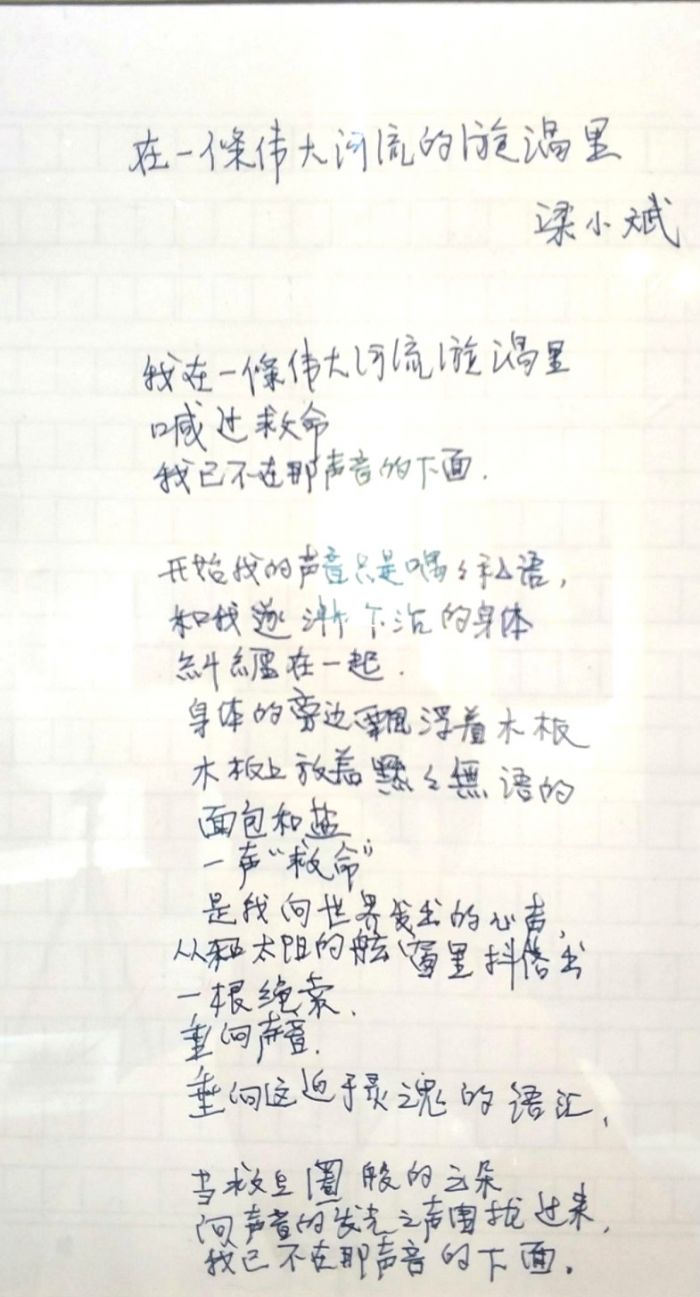 在一條伟大河流的漩渦里
梁小斌
我在一條伟大河流漩渦里
喊过救命
我已不在那声音的下面.
开始我的声音只是喁々私语,
和我逐渐下沉的身体
糾纏在一起.
身体的旁边飄浮着木板
木板上放着默々無语的
面包和盐
一声“救命”
是我向世界发出的心声,
从和太阳的舷窗里抖落出
一根绳索.
垂向声音.
垂向这近于灵魂的语汇,
当救生圈般的云朵
向声音的发光之声围拢过来,
我已不在那声音的下面.